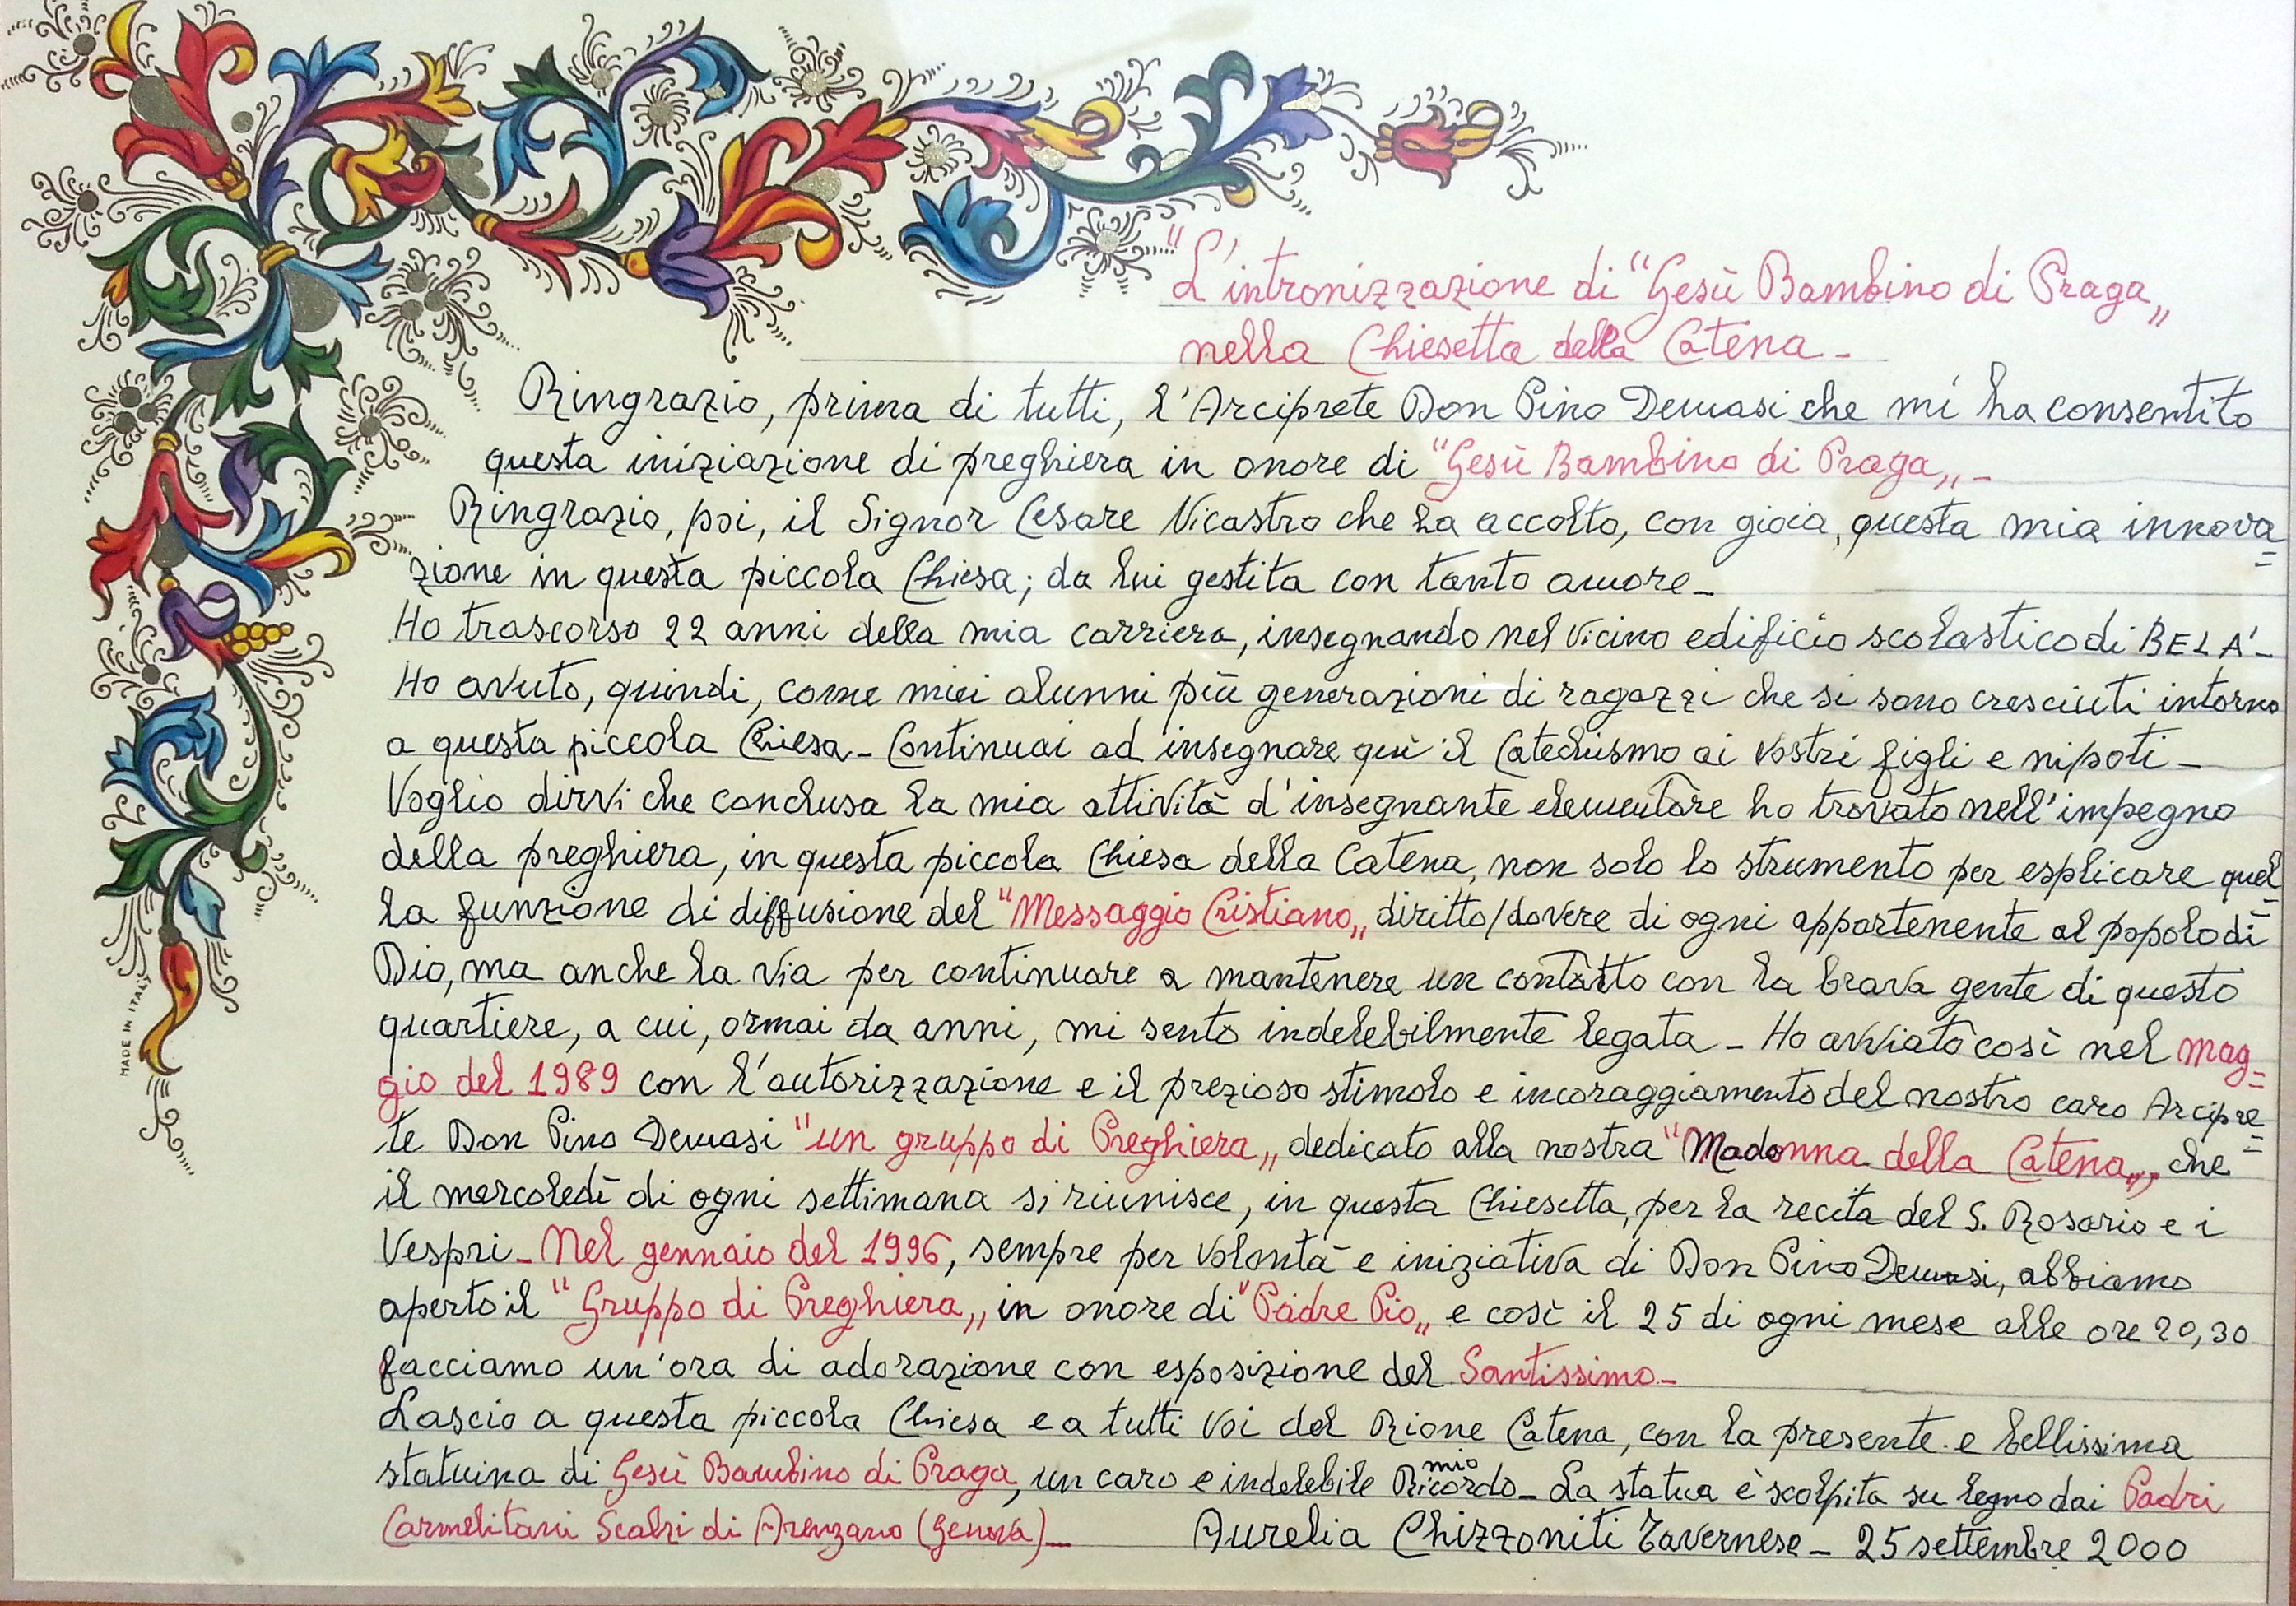 "L'intronizzazione di "Gesù Bambino di Praga„
nella Chiesetta della Catena_
Ringrazio, prima di tutti, l'Arciprete Don Pino Demasi che mi ha consentito
questa iniziazione di preghiera in onore di "Gesù Bambino di Praga„_
Ringrazio, poi, il Signor Cesare Nicastro che ha accolto, con gioia, questa mia innova=
zione in questa piccola Chiesa; da lui gestita con tanto amore_
Ho trascorso 22 anni della mia carriera, insegnando nel vicino edificio scolastico di BELA'_
Ho avuto, quindi, come miei alunni più generazioni di ragazzi che si sono cresciuti intorno
a questa piccola Chiesa_ Continuai ad insegnare quì il Catechismo ai vostri figli e nipoti_
Voglio dirvi che conclusa la mia attività d'insegnante elementare ho trovato nell'impegno
della preghiera, in questa piccola Chiesa della Catena, non solo lo strumento per esplicare quel=
la funzione di diffusione del "Messaggio Cristiano„ diritto/dovere di ogni appartenente al popolo di
Dio, ma anche la via per continuare a mantenere un contatto con la brava gente di questo
quartiere, a cui, ormai da anni, mi sento indelebilmente legata_ Ho avviato così nel mag=
gio del 1989 con l'autorizzazione e il prezioso stimolo e incoraggiamento del nostro caro Arcipre=
te Don Pino Demasi "un gruppo di Preghiera„ dedicato alla nostra "Madonna della Catena„, che
il mercoledì di ogni settimana si riunisce, in questa Chiesetta, per la recita del S. Rosario e i
Vespri_ Nel gennaio del 1996, sempre per volontà e iniziativa di Don Pino Demasi, abbiamo
aperto il "Gruppo di Preghiera„ in onore di "Padre Pio„ e così il 25 di ogni mese alle ore 20,30
facciamo un'ora di adorazione con esposizione del Santissimo_
Lascio a questa piccola Chiesa e a tutti voi del Rione Catena, con la presente e bellissima
statuina di Gesù Bambino di Praga, un caro e indelebile mio Ricordo_ La statua è scolpita su legno dai Padri
Carmelitani Scalzi di Arenzano (Genova)_ Aurelia Chizzoniti Tavernese_ 25 settembre 2000
MADE IN ITALY